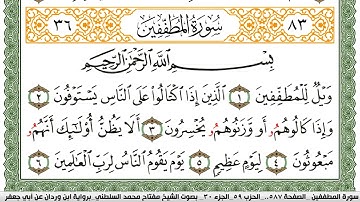 ٨٣ سُورَةُ المُطَفِّفِينَ ٣٦
بِسْمِ اللَّهِ الرَّحْمَٰنِ الرَّحِيمِ
وَيْلٌ لِّلْمُطَفِّفِينَ ١ الَّذِينَ إِذَا اكْتَالُوا عَلَى النَّاسِ يَسْتَوْفُونَ ٢
وَإِذَا كَالُوهُمُ أَو وَّزَنُوهُمُ يُخْسِرُونَ ٣ أَلَا يَظُنُّ أُولَٰئِكَ أَنَّهُمُ
مَبْعُوثُونَ ٤ لِيَوْمٍ عَظِيمٍ ٥ يَوْمَ يَقُومُ النَّاسُ لِرَبِّ الْعَالَمِينَ ٦
سورة المطففين .. الصفحة ٥٨٧ .. الحزب ٥٩ .. الجزء ٣٠ .. بصوت الشيخ مفتاح محمد السلطني .. برواية ابن وردان عن أبي جعفر